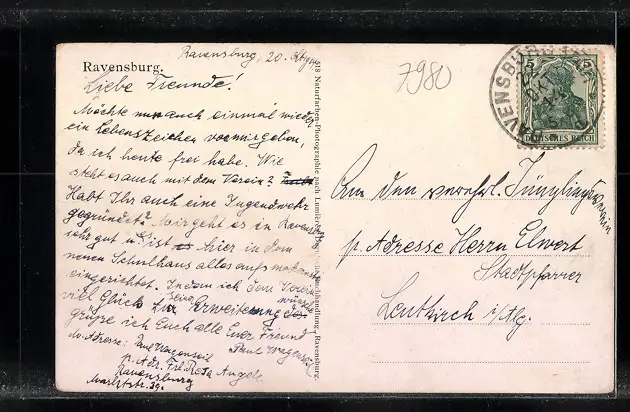 Ravensburg, 20. Okt.
Ravensburg.
Liebe Freunde!
Möchte auch einmal wieder
ein Lebenszeichen von mir geben,
da ich heute frei habe. Wie
steht es auch mit dem Verein?
Habt Ihr auch eine Jugendwehr
gegründet? Mir geht es in Ravensb.
sehr gut u. ist hier in dem
neuen Schulhaus alles aufs modernste
eingerichtet. Indem ich dem Verein
viel Glück zur Erweiterung wünsche
grüße ich Euch alle Euer Freund
Paul Wagenseil
Adresse: Paul Wagenseil
p. Adr. Frl. Rosa Angele
Ravensburg
Marktstr. 39.
Naturfarben-Photographie nach Lumière
Buchhandlung, Ravensburg.
7980
RAVENSBURG
5 5
DEUTSCHES REICH
An den verehrl. Jünglingsverein
p. Adresse Herrn Elwert
Stadtpfarrer
Leutkirch i/Allg.